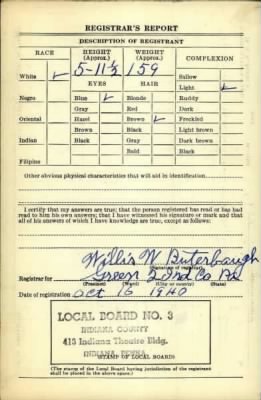 REGISTRAR'S REPORT
DESCRIPTION OF REGISTRANT
RACE HEIGHT (Approx.) WEIGHT (Approx.) COMPLEXION
5-11½ 159
White ✓ EYES HAIR Sallow
Light ✓
Negro Blue ✓ Blonde Ruddy
Gray Red Dark
Oriental Hazel Brown ✓ Freckled
Brown Black Light brown
Indian Black Gray Dark brown
Bald Black
Filipino
Other obvious physical characteristics that will aid in identification
I certify that my answers are true; that the person registered has read or has had
read to him his own answers; that I have witnessed his signature or mark and that
all of his answers of which I have knowledge are true, except as follows:
Willis W Buterbaugh
(Signature of registrar)
Registrar for Green 2 Ind Co Pa
(Precinct) (Ward) (City or county) (State)
Date of registration Oct 16 1940
LOCAL BOARD NO. 3
INDIANA COUNTY
413 Indiana Theatre Bldg.
INDIANA, PENNA.
(STAMP OF LOCAL BOARD)
(The stamp of the Local Board having jurisdiction of the registrant
shall be placed in the above space.)